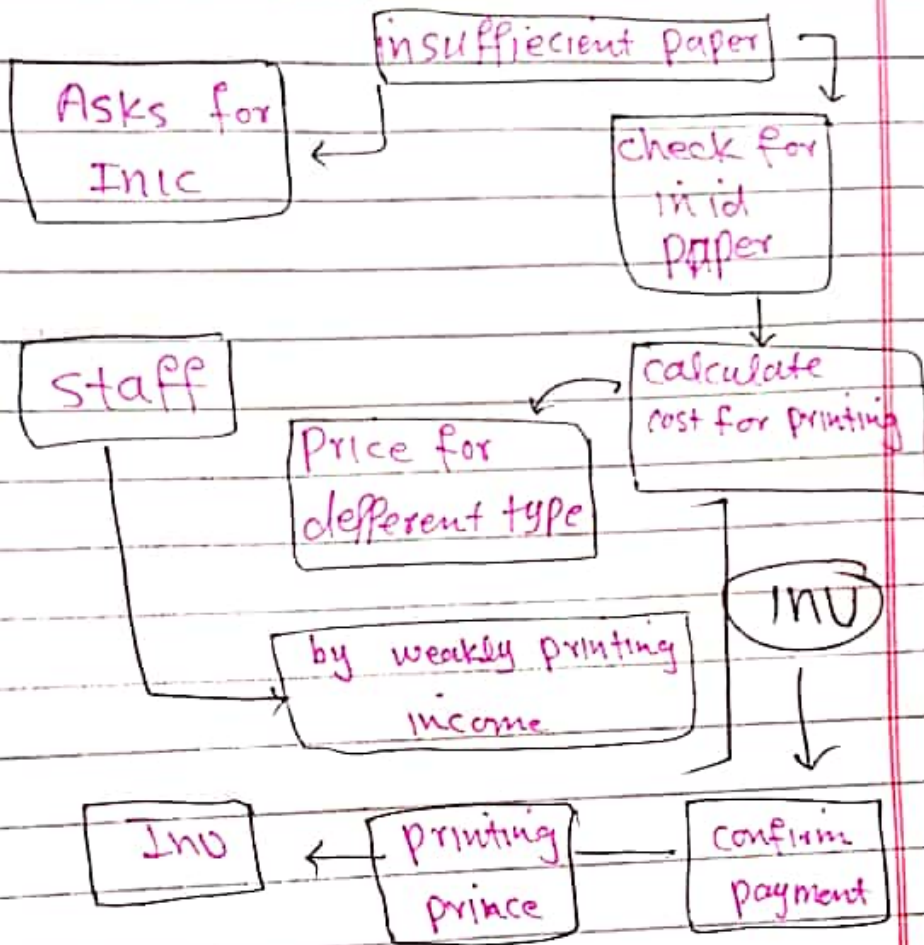 insuffiecient paper
Asks for
Inic
check for
in id
paper
calculate
cost for printing
staff
Price for
defferent type
INU
by weakly printing
income
Inu
printing
prince
confirm
payment